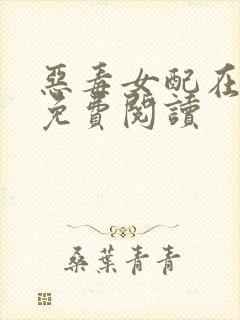 惡毒女配在
免費閱讀
桑葉青青